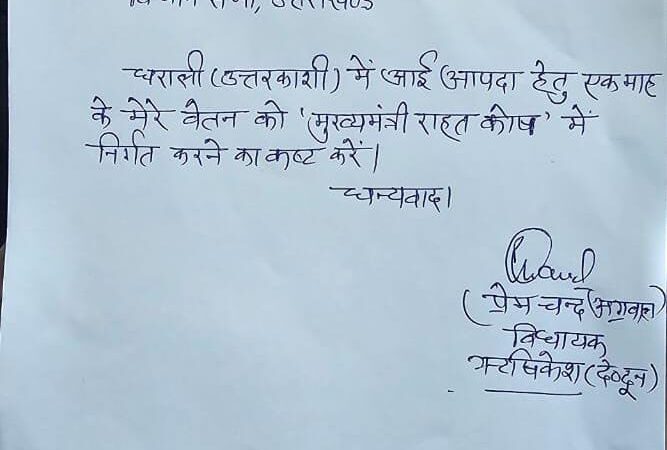 विधान सभा, उत्तराखण्ड
धराली (उत्तरकाशी) में आई आपदा हेतु एक माह
के मेरे वेतन को 'मुख्यमंत्री राहत कोष' में
निर्गत करने का कष्ट करें।
धन्यवाद।
(प्रेम चन्द अग्रवाल)
विधायक
ऋषिकेश (दे०दून)